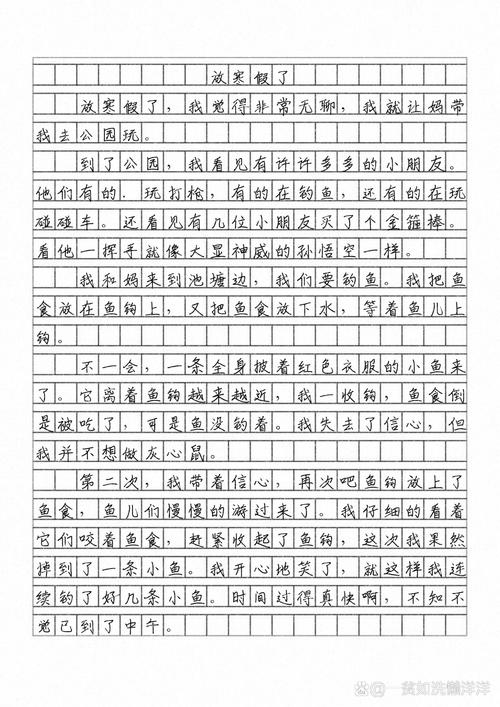 放寒假了
放寒假了，我觉得非常无聊，我就让妈带
我去公园玩。
到了公园，我看见有许许多多的小朋友。
他们有的．玩打枪，有的在钓鱼，还有的在玩
碰碰车。还看见有几位小朋友买了个金箍棒。
看他一挥手就像大显神威的孙悟空一样。
我和妈来到池塘边，我们要钓鱼。我把鱼
食放在鱼钩上，又把鱼食放下水，等着鱼儿上
钩。
不一会，一条全身披着红色衣服的小鱼来
了。它离着鱼钩越来越近，我一收钩，鱼食倒
是被吃了，可是鱼没钓着。我失去了信心，但
我并不想做灰心鼠。
第二次，我带着信心，再次吧鱼钩放上了
鱼食，鱼儿们慢慢的游过来了。我仔细的看着
它们咬着鱼食，赶紧收起了鱼钩，这次我果然
掉到了一条小鱼。我开心地笑了，就这样我连
续钓了好几条小鱼。时间过得真快啊，不知不
觉已到了中午。
一贫如洗懒洋洋